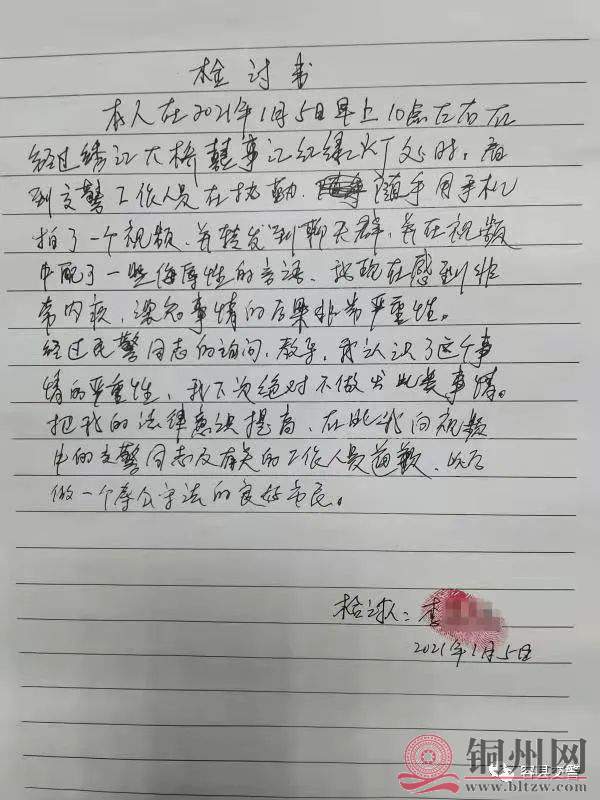 检讨书
本人在2021年1月5日早上10点左右在
经过绣江大桥 红绿灯处时,看
到交警工作人员在执勤,随手用手机
拍了一个视频,并转发到聊天群,并在视频
中配了一些侮辱性的言语,我现在感到非
常内疚,深知事情的后果非常严重性。
经过民警同志的询问、教导,我认识了这个事
情的严重性,我下次绝对不做出此类事情。
把我的法律意识提高,在此我向视频
中的交警同志及有关的工作人员道歉,以后
做一个奉公守法的良好市民。
检讨人:李
2021年1月5日
铜州网
容县交警
www.bltzw.com